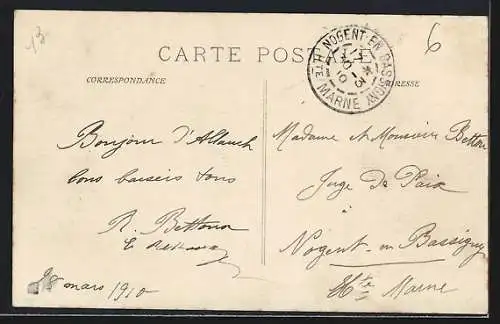 13
6
CARTE POST
NOGENT-EN-BASSIGNY
HTE MARNE
CORRESPONDANCE
Bonjour d'Allauch
bons baisers tous
R. Bettona
28 mars 1910
Madame et Monsieur Betton
Juge De Paix
à
Nogent-en Bassigny
Hte Marne